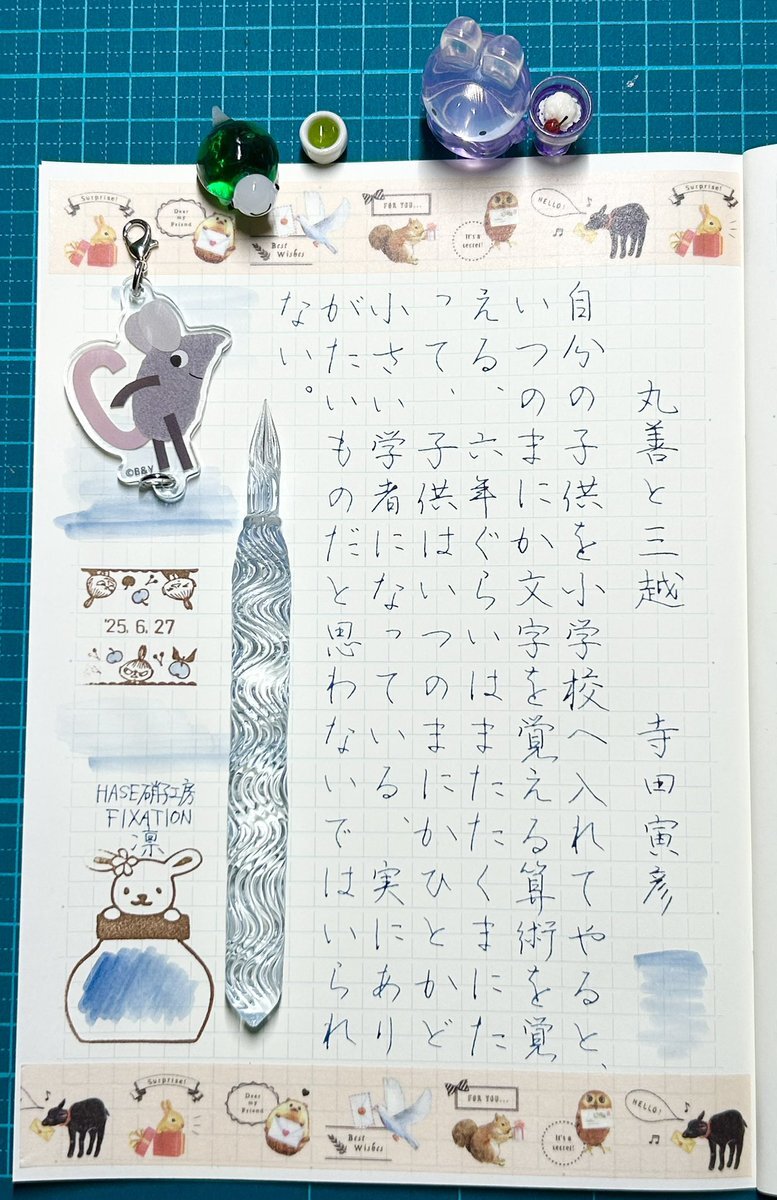 Surprise!
Dear
my
Friend
Best
Wishes
FOR YOU...
It's a
secret!
HELLO!
Surprise!
丸善と三越　寺田寅彦
自分の子供を小学校へ入れてやると、
いつのまにか文字を覚える算術を覚
える、六年ぐらいはまたたくまにた
って、子供はいつのまにかひとかど
小さい学者になっている、実にあり
がたいものだと思わないではいられ
ない。
©B&Y
'25. 6. 27
HASE硝子工房
FIXATION
凛
Surprise!
Dear
my
Friend
Best
Wishes
FOR YOU...
It's a
secret!
HELLO!